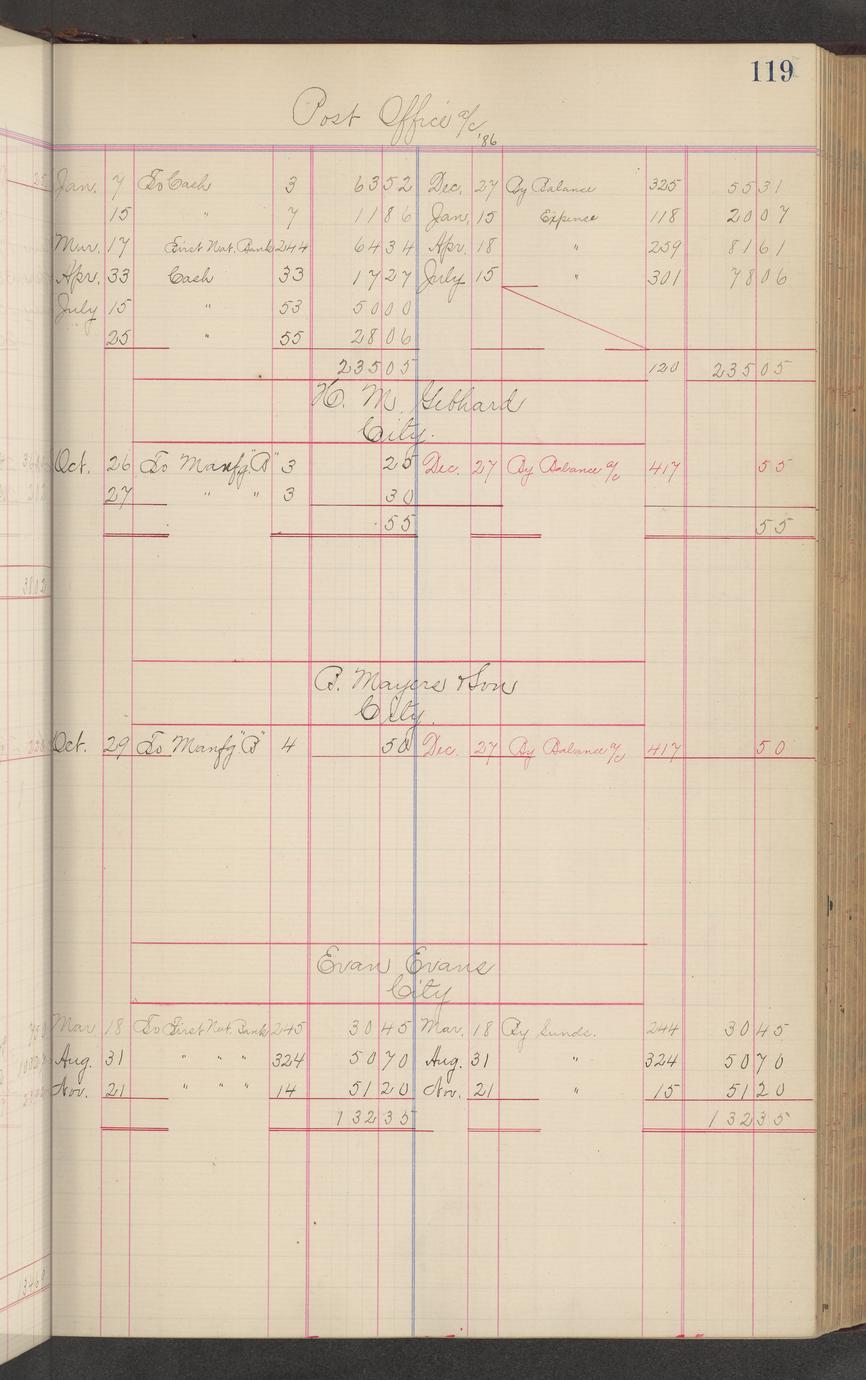 119
Post Office a/c
'86
Jan. 7 To Cash 3 63 52 Dec. 27 By Balance 325 55 31
15 " 7 11 86 Jan. 15 Expence 118 20 07
Mar. 17 First Nat. Bank 244 64 34 Apr. 18 " 259 81 61
Apr. 33 Cash 33 17 27 July 15 " 301 78 06
July 15 " 53 50 00
25 " 55 28 06
235 05 120 235 05
H. M. Gebhard
City.
Oct. 26 To Manfg. "B" 3 25 Dec. 27 By Balance a/c 417 55
27 " " 3 30
55 55
B. Mayers & Son
City.
Oct. 29 To Manfg. "B" 4 50 Dec. 27 By Balance a/c 417 50
Evan Evans
City
Mar 18 To First Nat. Bank 245 30 45 Mar. 18 By Sunds. 244 30 45
Aug. 31 " " " 324 50 70 Aug. 31 " 324 50 70
Nov. 21 " " " 14 51 20 Nov. 21 " 15 51 20
132 35 132 35